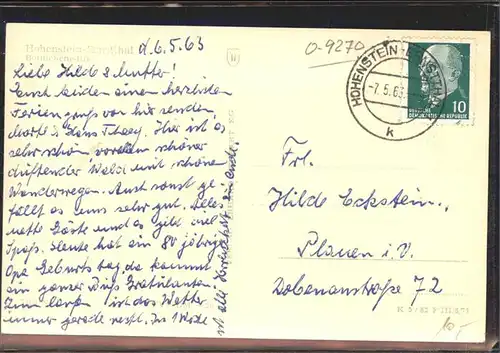 Hohenstein-Ernstthal
d. 6.5.63
O-9270
HOHENSTEIN-ERNSTTHAL
-7.5.63
k
10
DEUTSCHE
DEMOKRATISCHE REPUBLIK
Liebe Hilde & Mutter!
Euch beiden einen herzlichen
Feriengruß von hier senden,
Hier ist es
sehr schön, vor allem schöner
duftender Wald mit schönen
Wanderwegen. Auch sonst ge-
fällt es uns sehr gut. Alles
nette Gäste und es gibt viel
Spaß. Heute hat ein 80 jähriger
Opa Geburtstag, da kommt
ein ganzer Gratulanten.
Zum ist das Wetter
immer gerade recht. In 1 Woche
ist alle Herrlichkeit zu Ende.
Frl.
Hilde Eckstein,
Plauen i. V.
Dobenaustraße 72
10,-